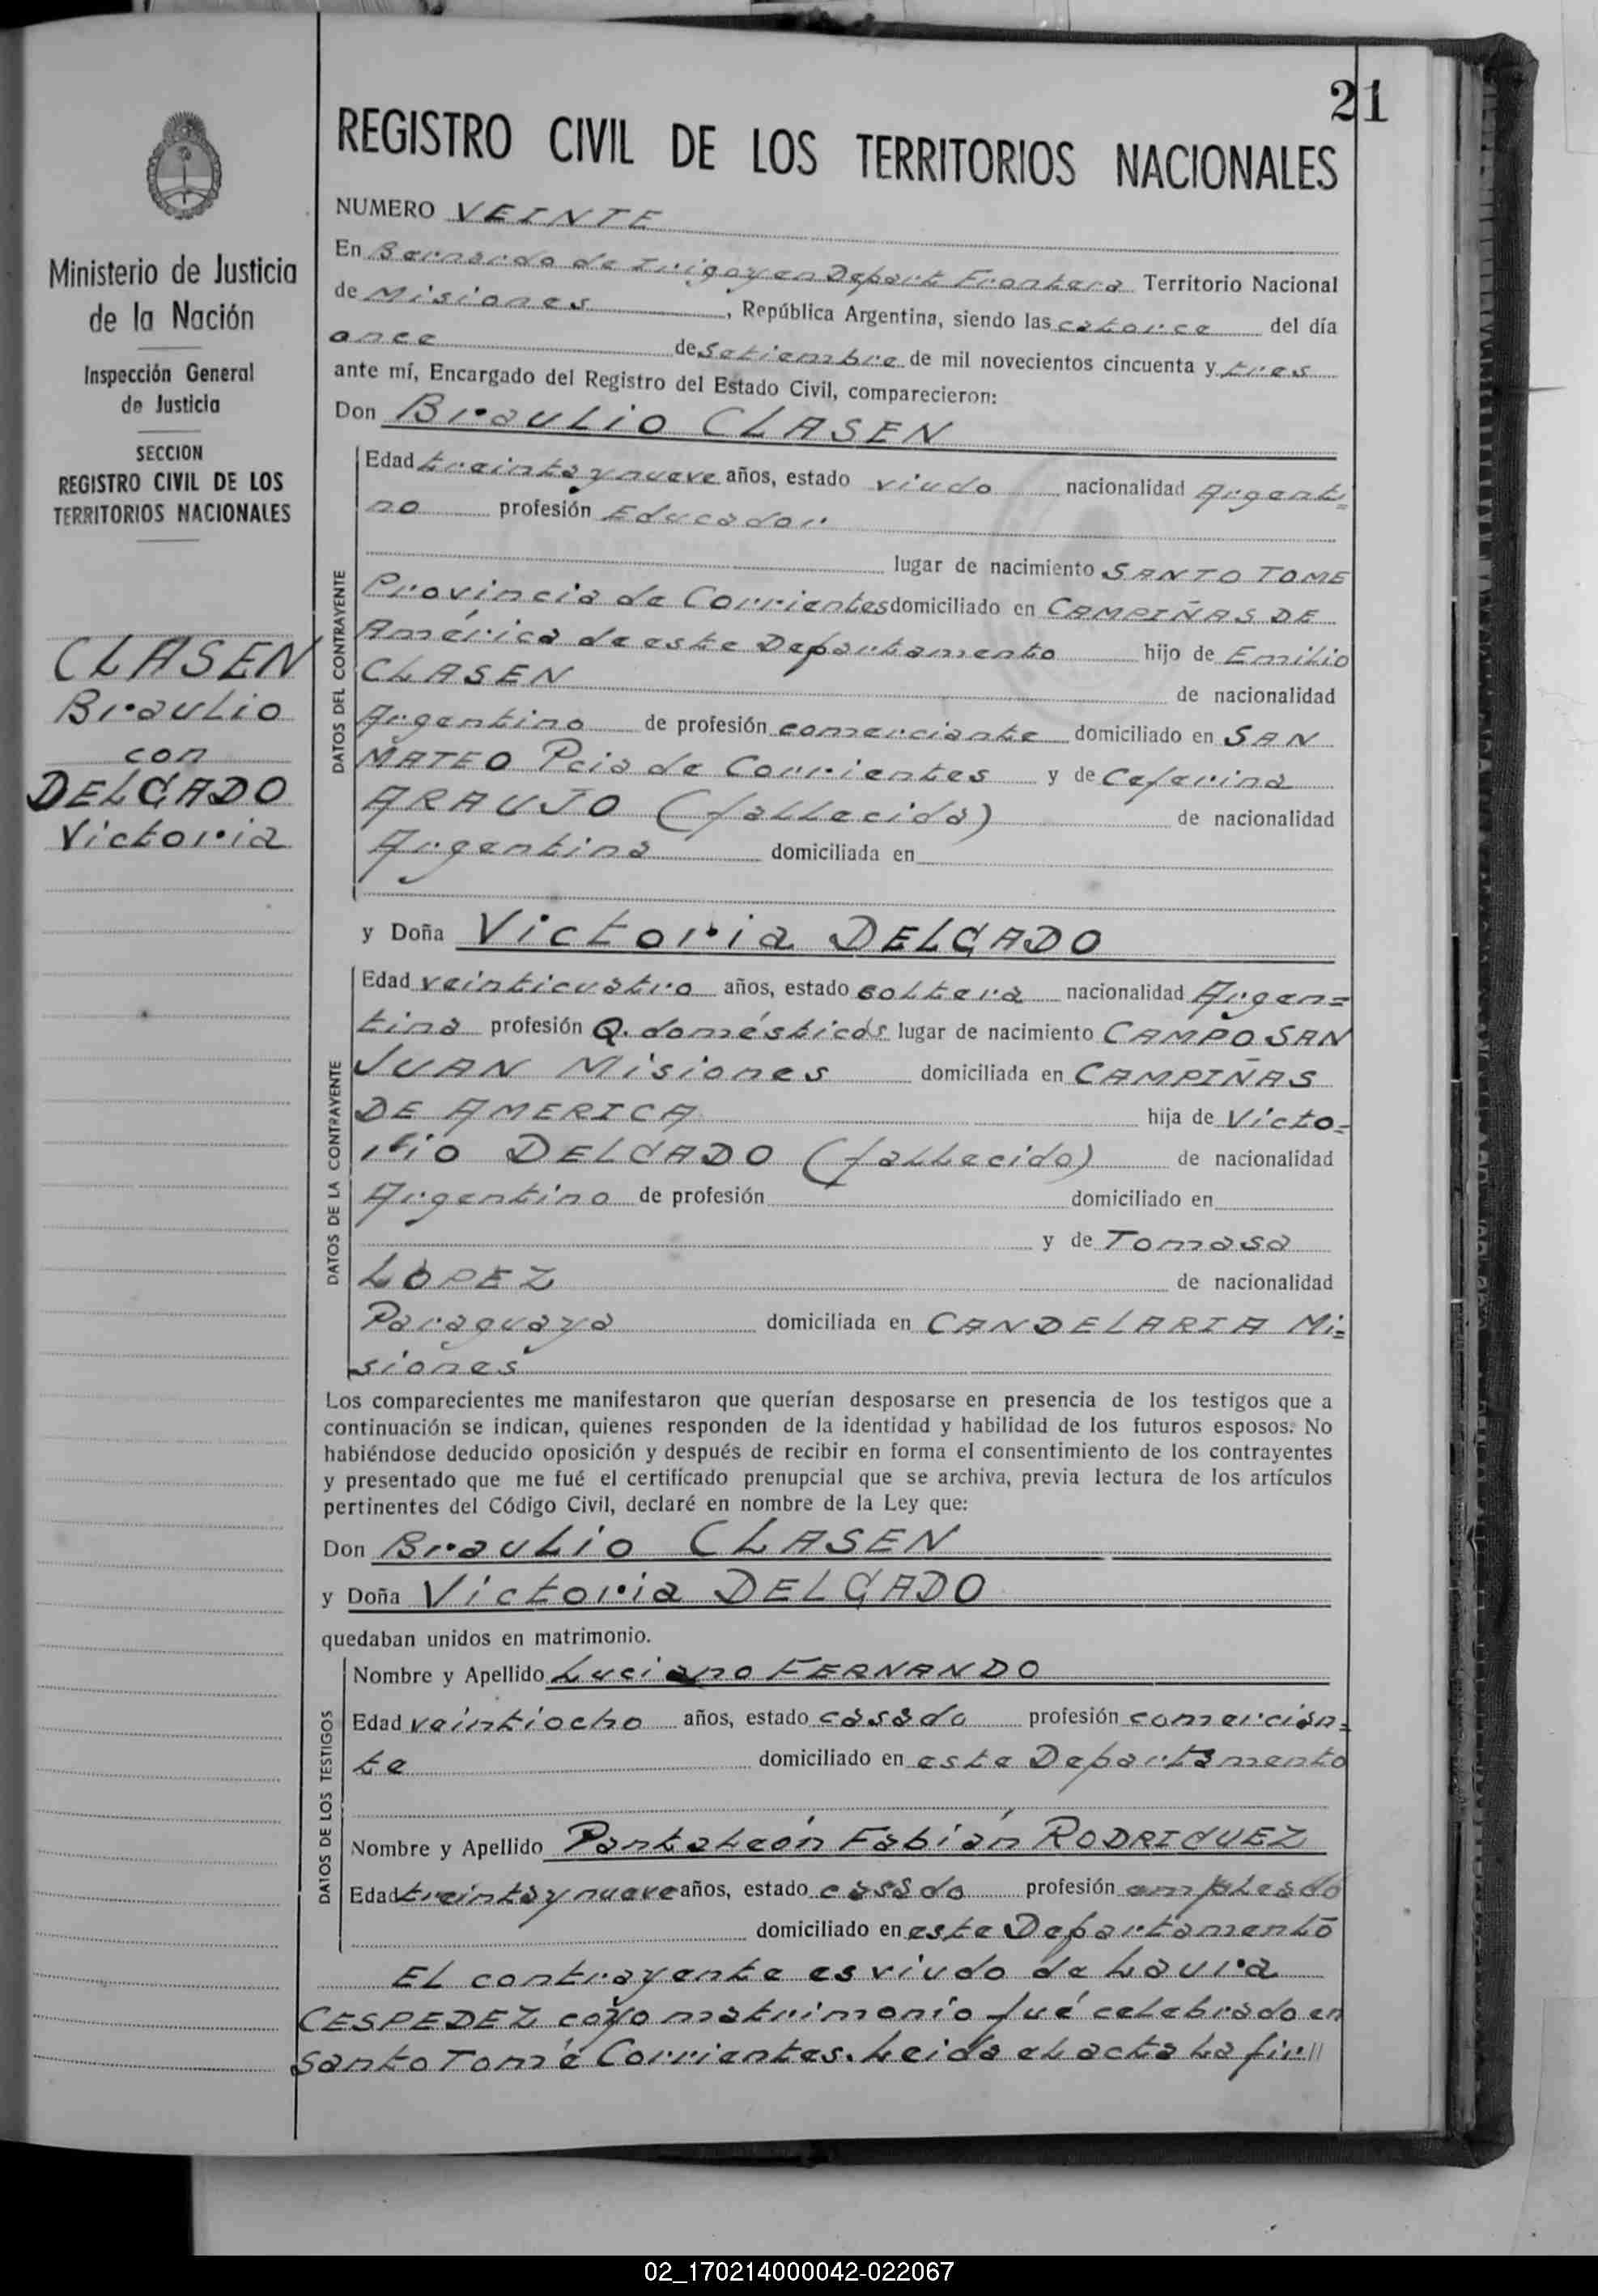 21
REGISTRO CIVIL DE LOS TERRITORIOS NACIONALES
Ministerio de Justicia
de la Nación
Inspección General
de Justicia
SECCION
REGISTRO CIVIL DE LOS
TERRITORIOS NACIONALES
CLASEN
Braulio
con
DELGADO
Victoria
NUMERO VEINTE
En Bernardo de Irigoyen Depart Frontera Territorio Nacional
de Misiones, República Argentina, siendo las catorce del día
once de Setiembre de mil novecientos cincuenta y tres
ante mí, Encargado del Registro del Estado Civil, comparecieron:
Don Braulio CLASEN
DATOS DEL CONTRAYENTE
Edad treinta y nueve años, estado viudo nacionalidad Argenti=
no profesión Educador
lugar de nacimiento SANTO TOME
Provincia de Corrientes domiciliado en CAMPIÑAS DE
América de este Departamento hijo de Emilio
CLASEN de nacionalidad
Argentino de profesión comerciante domiciliado en SAN
MATEO Pcia de Corrientes y de Ceferina
ARAUJO (fallecida) de nacionalidad
Argentina domiciliada en
y Doña Victoria DELGADO
DATOS DE LA CONTRAYENTE
Edad veinticuatro años, estado soltera nacionalidad Argen=
tina profesión Q. domésticos lugar de nacimiento CAMPO SAN
JUAN Misiones domiciliada en CAMPIÑAS
DE AMERICA hija de Victo=
rio DELGADO (fallecido) de nacionalidad
Argentino de profesión domiciliado en
y de Tomasa
LÓPEZ de nacionalidad
Paraguaya domiciliada en CANDELARIA Mi=
siones
Los comparecientes me manifestaron que querían desposarse en presencia de los testigos que a
continuación se indican, quienes responden de la identidad y habilidad de los futuros esposos. No
habiéndose deducido oposición y después de recibir en forma el consentimiento de los contrayentes
y presentado que me fué el certificado prenupcial que se archiva, previa lectura de los artículos
pertinentes del Código Civil, declaré en nombre de la Ley que:
Don Braulio CLASEN
y Doña Victoria DELGADO
quedaban unidos en matrimonio.
DATOS DE LOS TESTIGOS
Nombre y Apellido Luciano FERNANDO
Edad veintiocho años, estado casado profesión comercian=
te domiciliado en este Departamento
Nombre y Apellido Pantaleón Fabián RODRIGUEZ
Edad treinta y nueve años, estado casado profesión empleado
domiciliado en este Departamento
El contrayente es viudo de Laura
CESPEDEZ cuyo matrimonio fué celebrado en
Santo Tomé Corrientes. Leida el acta la fir//
02_170214000042-022067